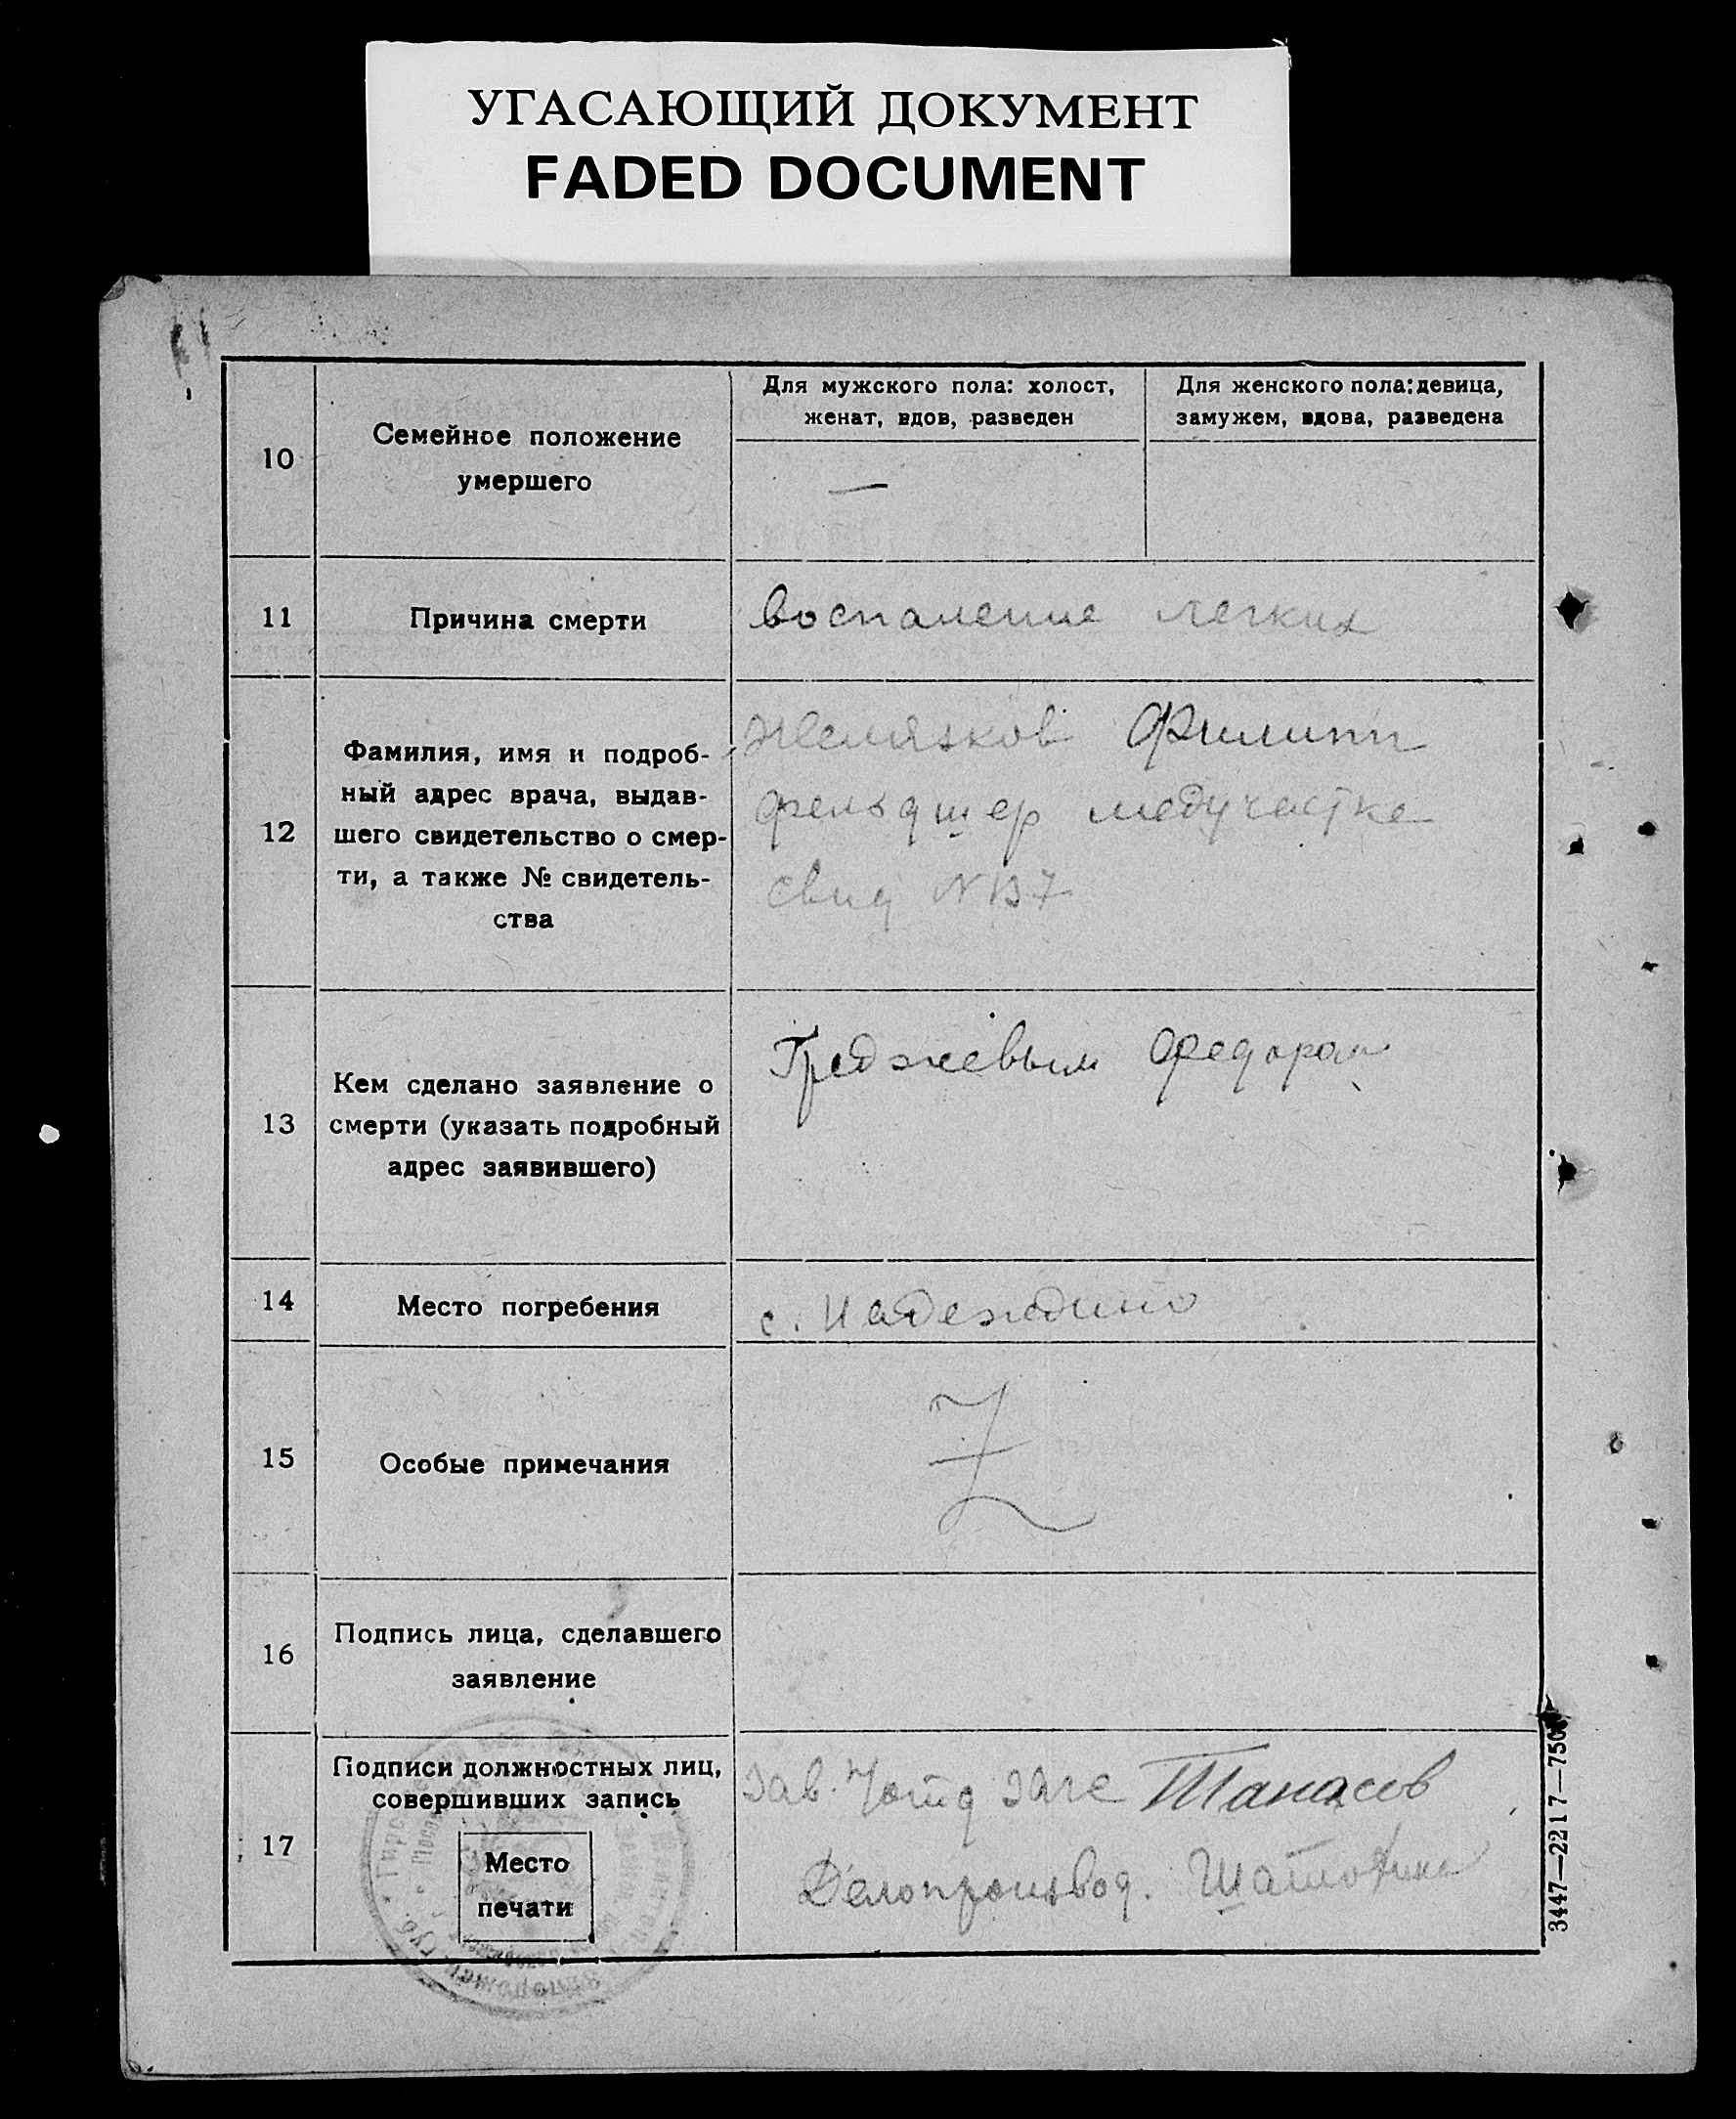 УГАСАЮЩИЙ ДОКУМЕНТ
FADED DOCUMENT
10
Семейное положение
умершего
Для мужского пола: холост,
женат, вдов, разведен
Для женского пола: девица,
замужем, вдова, разведена
—
11
Причина смерти
воспаление легких
12
Фамилия, имя и подроб-
ный адрес врача, выдав-
шего свидетельство о смер-
ти, а также № свидетель-
ства
Желязков Филипп
фельдшер медучастке
свид N 137
13
Кем сделано заявление о
смерти (указать подробный
адрес заявившего)
Греджевым Федором
14
Место погребения
с. Надеждино
15
Особые примечания
Z
16
Подпись лица, сделавшего
заявление
17
Подписи должностных лиц,
совершивших запись
Место
печати
Зав. Загс Танасов
Делопроизвод.
3447—2217—750